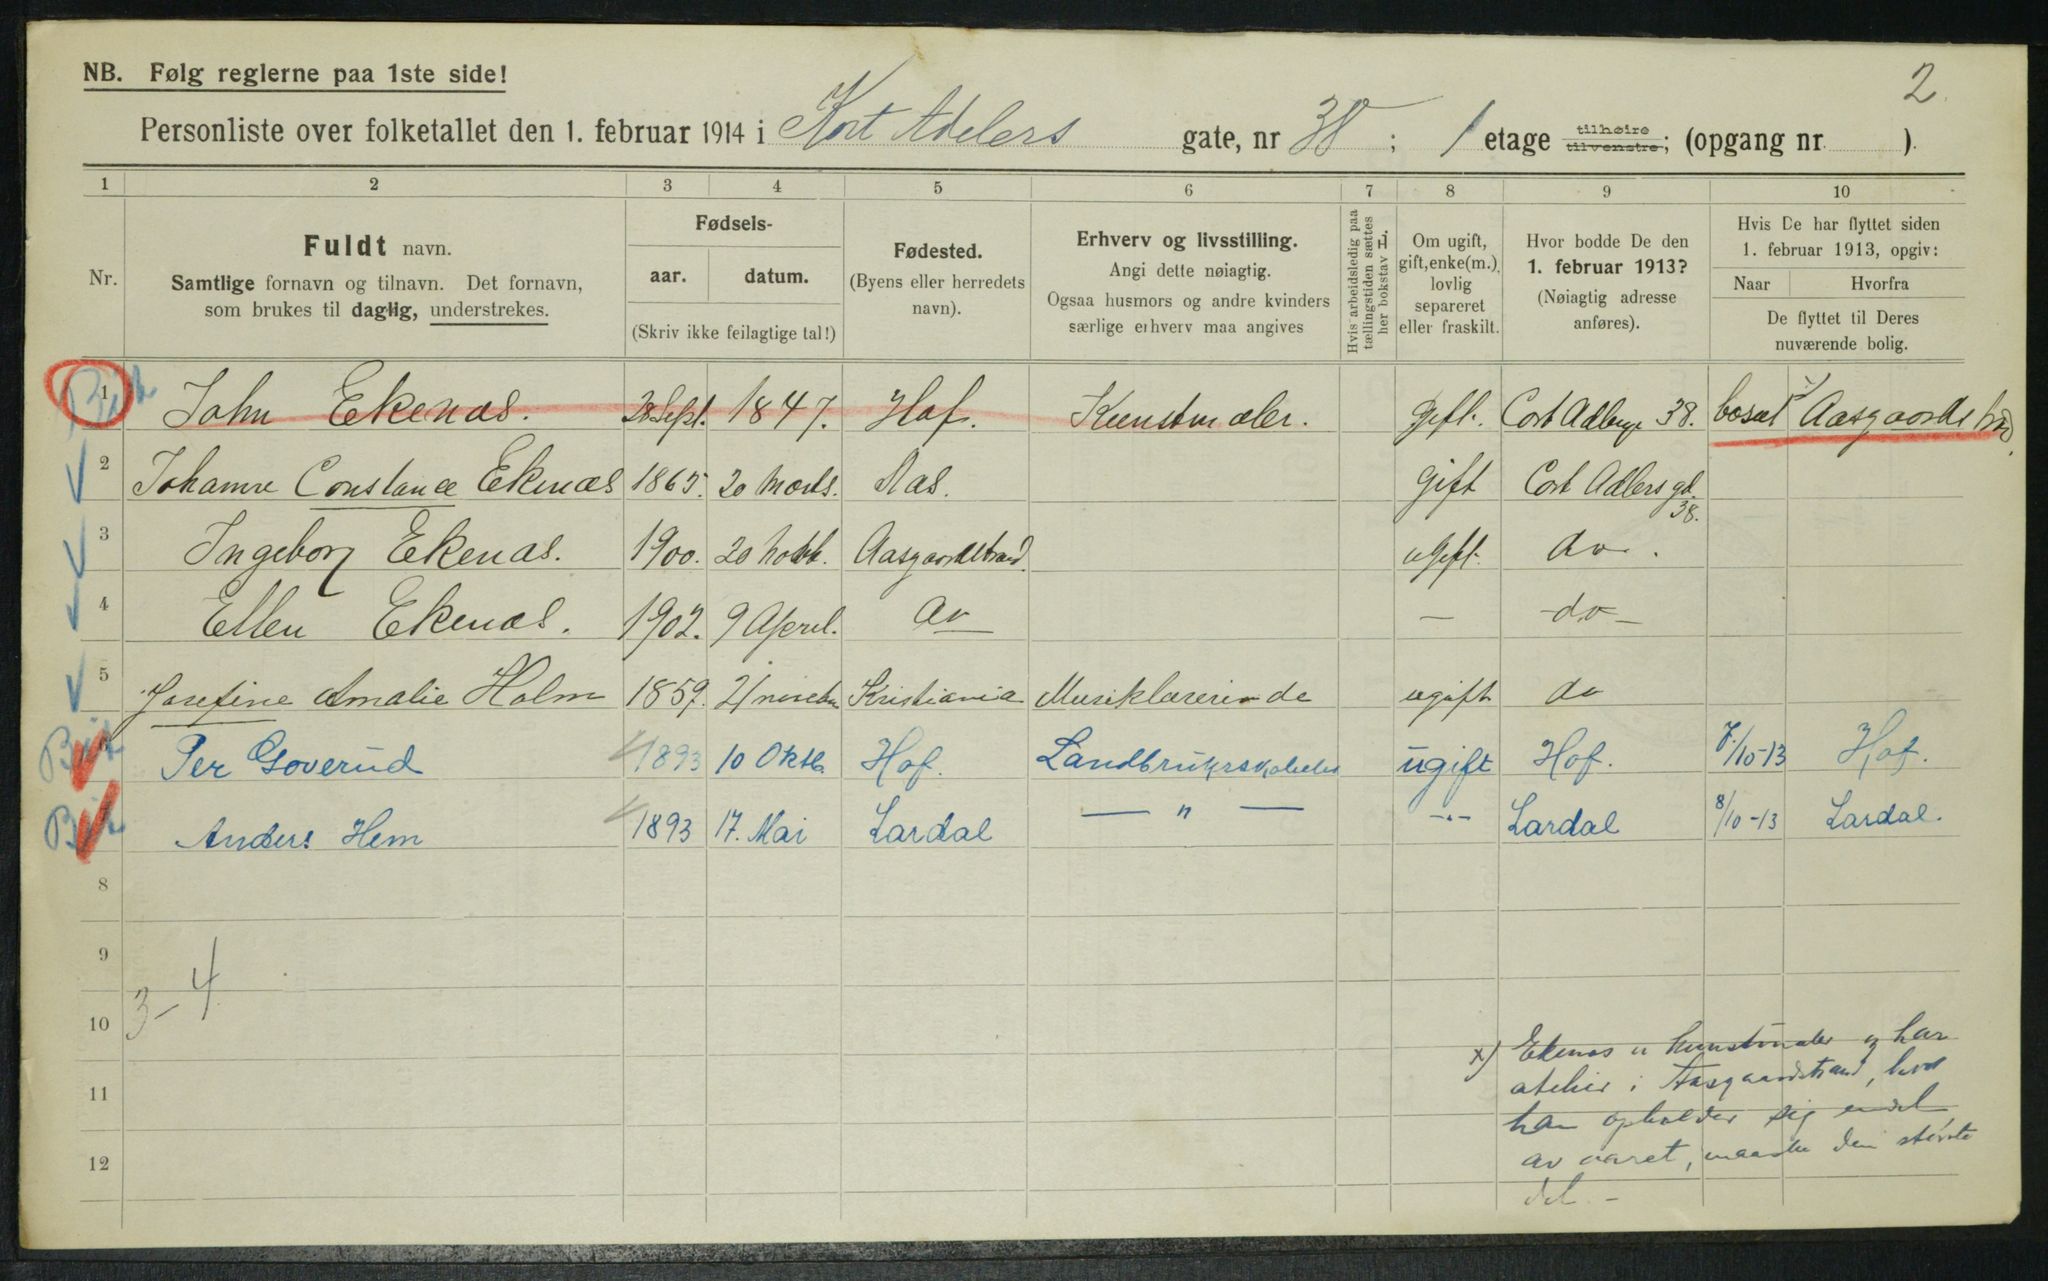 2
NB. Følg reglerne paa 1ste side!
Personliste over folketallet den 1. februar 1914 i Kort Adelers gate, nr 38; 1 etage tilhøire tilvenstre; (opgang nr ).
1 2 3 4 5 6 7 8 9 10
Nr.
Fuldt navn.
Samtlige fornavn og tilnavn. Det fornavn,
som brukes til daglig, understrekes.
Fødsels-
aar. datum.
(Skriv ikke feilagtige tal!)
Fødested.
(Byens eller herredets
navn).
Erhverv og livsstilling.
Angi dette nøiagtig.
Ogsaa husmors og andre kvinders
særlige erhverv maa angives
Hvis arbeidsledig paa
tællingstiden sættes
her bokstav L.
Om ugift,
gift, enke(m.),
lovlig
separeret
eller fraskilt.
Hvor bodde De den
1. februar 1913?
(Nøiagtig adresse
anføres).
Hvis De har flyttet siden
1. februar 1913, opgiv:
Naar Hvorfra
De flyttet til Deres
nuværende bolig.
1 John Ekenæs. 28 Sept. 1847. Hof. Kunstmaler. gift. Cort 38. bosat x) Aasgaardstrand
2 Johanne Constance Ekenæs 1865. 20 Marts. Aas. gift Cort Adlers gd. 38.
3 Ingeborg Ekenæs. 1900. 20 Aasgaardstrand. ugift. do.
4 Ellen Ekenæs. 1902. 9 April. do — do —
5 Josefine Amalie Holm 1859. 21 Kristiania Musiklærerinde ugift do
6 Per Goverud 1893 10 Oktb. Hof. ugift Hof. 7/10-13 Hof.
Anders Hem 1893 17. Mai Lardal — " — -"- Lardal 8/10-13 Lardal.
8
9
3-4
10
11
12
x) Ekenæs er kunstmaler og har
atelier i Aasgaardstrand, hvor
han opholder sig endel
av aaret, maaske den største
del. -